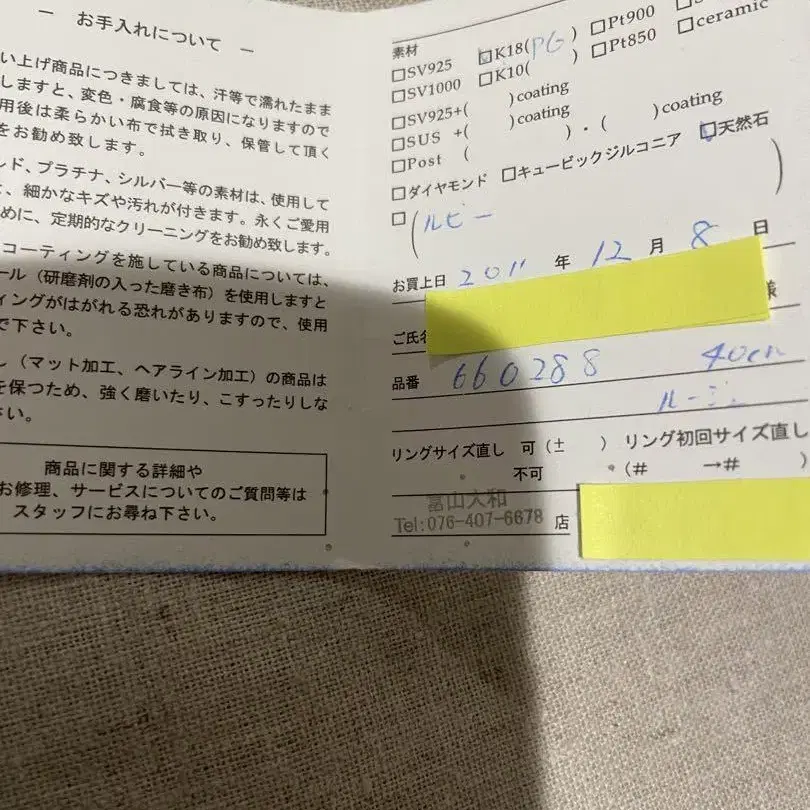 ー お手入れについて ー
い上げ商品につきましては、汗等で濡れたまま
しますと、変色・腐食等の原因になりますので
用後は柔らかい布で拭き取り、保管して頂く
をお勧め致します。
ルド、プラチナ、シルバー等の素材は、使用して
、細かなキズや汚れが付きます。永くご愛用
めに、定期的なクリーニングをお勧め致します。
コーティングを施している商品については、
ール（研磨剤の入った磨き布）を使用しますと
ィングがはがれる恐れがありますので、使用
で下さい。
し（マット加工、ヘアライン加工）の商品は
を保つため、強く磨いたり、こすったりしな
さい。
商品に関する詳細や
お修理、サービスについてのご質問等は
スタッフにお尋ね下さい。
素材
□SV925 ☑K18(PG) □Pt900
□SV1000 □K10( ) □Pt850 □ceramic
□SV925+( )coating
□SUS +( )coating
□Post ( )・( )coating
□ダイヤモンド □キュービックジルコニア ☑天然石
□(ルビー)
お買上日 2011 年 12 月 8 日
ご氏名 様
品番 660288 40cm
ルージュ
リングサイズ直し 可（± ） リング初回サイズ直し
不可 （# →# ）
富山大和
Tel:076-407-6678 店